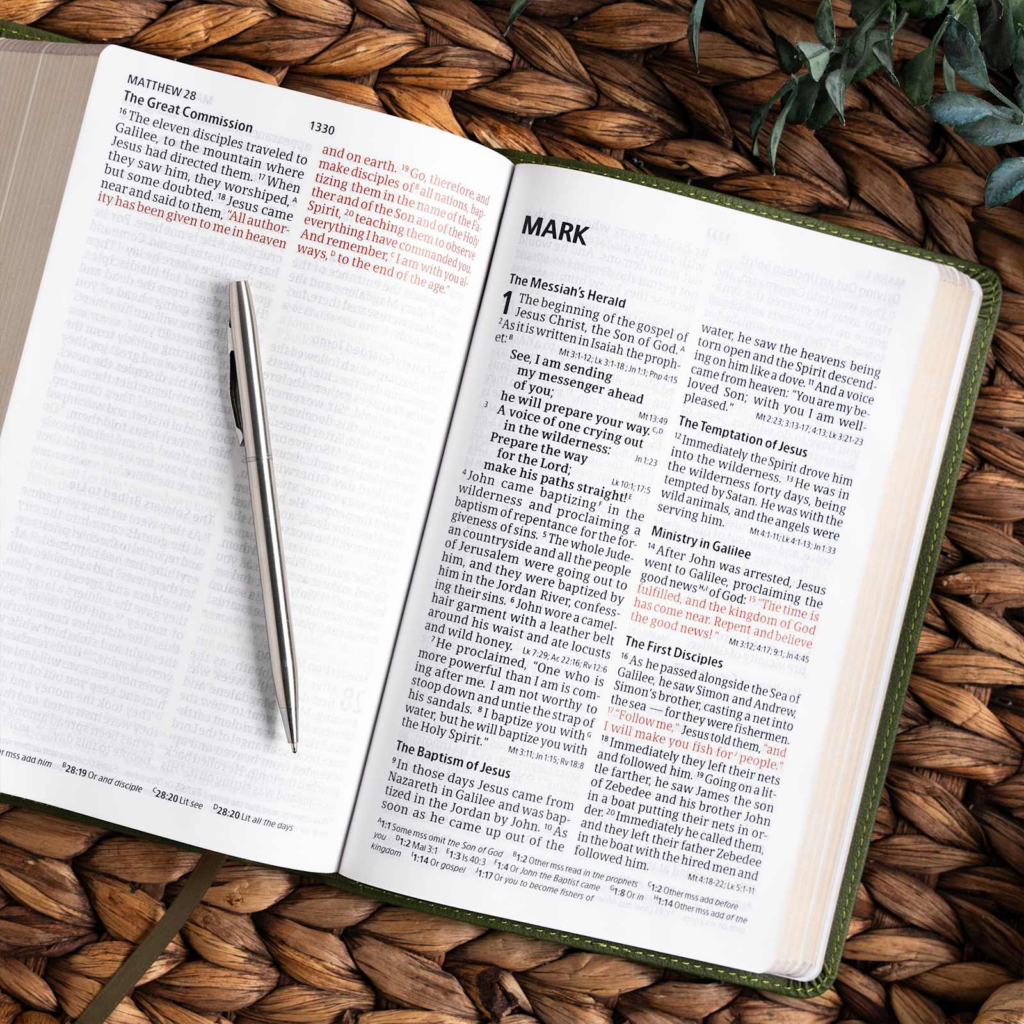 MATTHEW 28
1330
The Great Commission
16 The eleven disciples traveled to
Galilee, to the mountain where
Jesus had directed them. 17 When
they saw him, they worshiped, A
but some doubted. 18 Jesus came
near and said to them, "All author-
ity has been given to me in heaven
and on earth. 19 Go, therefore, and
make disciples of B all nations, bap-
tizing them in the name of the Fa-
ther and of the Son and of the Holy
Spirit, 20 teaching them to observe
everything I have commanded you.
And remember, C I am with you al-
ways, D to the end of the age."
mss add him B28:19 Or and disciple C28:20 Lit see D28:20 Lit all the days
MARK
The Messiah's Herald
1 The beginning of the gospel of
Jesus Christ, the Son of God. A
2 As it is written in Isaiah the proph-
et: B
Mt 3:1-12; Lk 3:1-18; Jn 1:1; Php 4:15
See, I am sending
my messenger ahead
of you;
Mt 13:49
he will prepare your way. C,D
3 A voice of one crying out
in the wilderness:
Jn 1:23
Prepare the way
for the Lord;
Lk 10:1; 17:5
make his paths straight! E
4 John came baptizing F in the
wilderness and proclaiming a
baptism of repentance for the for-
giveness of sins. 5 The whole Jude-
an countryside and all the people
of Jerusalem were going out to
him, and they were baptized by
him in the Jordan River, confess-
ing their sins. 6 John wore a camel-
hair garment with a leather belt
around his waist and ate locusts
and wild honey. Lk 7:29; Ac 22:16; Rv 12:6
7 He proclaimed, "One who is
more powerful than I am is com-
ing after me. I am not worthy to
stoop down and untie the strap of
his sandals. 8 I baptize you with G
water, but he will baptize you with
the Holy Spirit." Mt 3:11; Jn 1:15; Rv 18:8
The Baptism of Jesus
9 In those days Jesus came from
Nazareth in Galilee and was bap-
tized in the Jordan by John. 10 As
soon as he came up out of the
water, he saw the heavens being
torn open and the Spirit descend-
ing on him like a dove. 11 And a voice
came from heaven: "You are my be-
loved Son; with you I am well-
pleased." Mt 2:23; 3:13-17; 4:13; Lk 3:21-23
The Temptation of Jesus
12 Immediately the Spirit drove him
into the wilderness. 13 He was in
the wilderness forty days, being
tempted by Satan. He was with the
wild animals, and the angels were
serving him. Mt 4:1-11; Lk 4:1-13; Jn 1:33
Ministry in Galilee
14 After John was arrested, Jesus
went to Galilee, proclaiming the
good news H,I of God: 15 "The time is
fulfilled, and the kingdom of God
has come near. Repent and believe
the good news!" Mt 3:12; 4:17; 9:1; Jn 4:45
The First Disciples
16 As he passed alongside the Sea of
Galilee, he saw Simon and Andrew,
Simon's brother, casting a net into
the sea — for they were fishermen.
17 "Follow me," Jesus told them, "and
I will make you fish for J people."
18 Immediately they left their nets
and followed him. 19 Going on a lit-
tle farther, he saw James the son
of Zebedee and his brother John
in a boat putting their nets in or-
der. 20 Immediately he called them,
and they left their father Zebedee
in the boat with the hired men and
followed him. Mt 4:18-22; Lk 5:1-11
A1:1 Some mss omit the Son of God B1:2 Other mss read in the prophets C1:2 Other mss add before
you D1:2 Mal 3:1 E1:3 Is 40:3 F1:4 Or John the Baptist came G1:8 Or in H1:14 Other mss add of the
kingdom I1:14 Or gospel J1:17 Or you to become fishers of